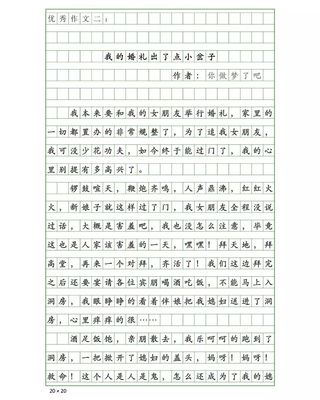 优秀作文二：
我的婚礼出了点小岔子
作者：你做梦了吧
我本来要和我的女朋友举行婚礼，家里的
一切都置办的非常规整了，为了追我女朋友，
我可没少花功夫，如今终于能过门了，我的心
里别提有多高兴了。
锣鼓喧天，鞭炮齐鸣，人声鼎沸，红红火
火，新娘子就这样过了门，我女朋友全程没说
过话，大概是害羞吧，我也没怎么注意，毕竟
这也是人家该害羞的一天，嘿嘿！拜天地，拜
高堂，再来一个对拜，齐活了！我们这边拜完
之后还要宴请各位宾朋喝酒吃饭，不能马上入
洞房，我眼睁睁的看着伴娘把我媳妇送进了洞
房，心里痒痒的很……
酒足饭饱，亲朋散去，我乐呵呵的跑到了
洞房，一把掀开了媳妇的盖头，妈呀！妈呀！
救命！这个人是人是鬼，怎么还成为了我的媳
20×20